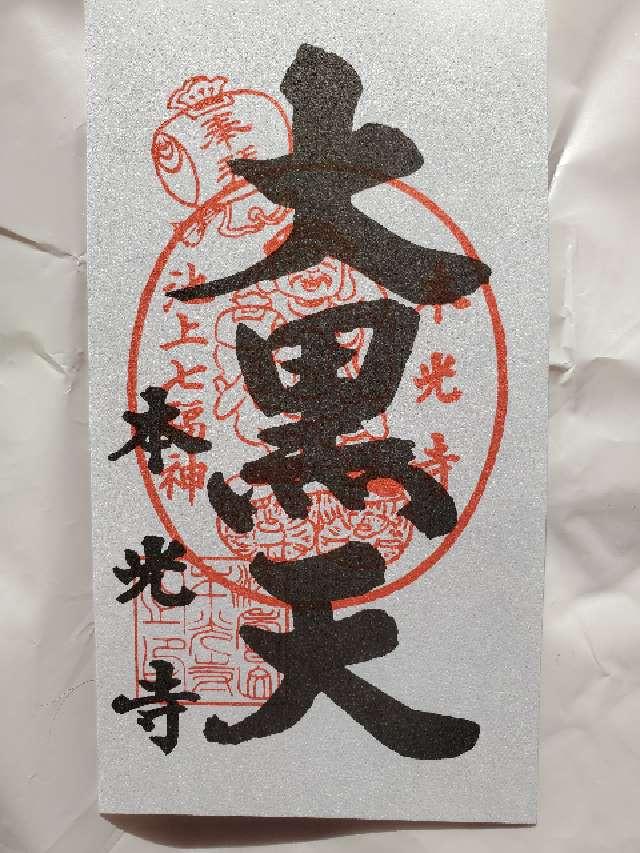 大黒天
本光寺
奉拝
本光寺
池上七福神